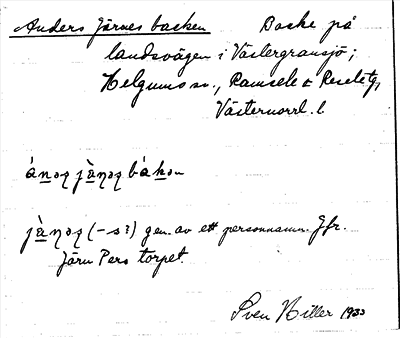 Anders Järnes backen Backe på
landsvägen i Västergransjö;
Helgums sn., Ramsele & Resele tg,
Västernorrl. l.
(-s?) gen. av ett personnamn. Jfr.
Järn Pers torpet.
Sven Hiller 1933